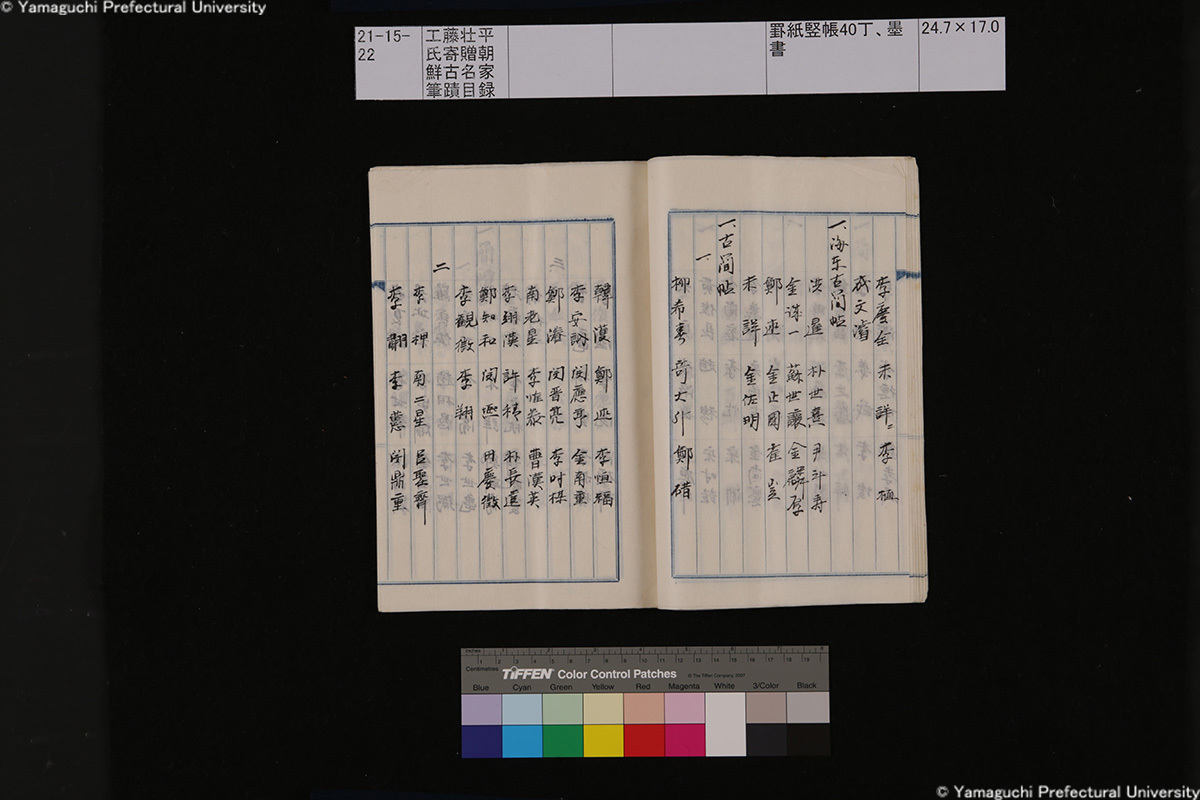 © Yamaguchi Prefectural University
21-15-22
工藤壮平
氏寄贈朝
鮮古名家
筆蹟目録
罫紙竪帳40丁、墨書
24.7×17.0
李慶全 未詳 李
成文濬
一、海东古简帖
洪暹 朴世熹 尹斗寿
金誠一 蘇世讓 金麟厚
鄭 金正國 崔岦
未詳 金佐明
一、古簡帖
一
柳希春 奇大升 鄭碏
韓濩 鄭 李恒福
李安訥 閔應亨 金南重
鄭 閔晋亮 李時楳
南老星 李惟泰 曹漢英
李翊漢 許積 朴長遠
鄭知和 閔 田慶徵
李觀徵 李翔
二
李柙 南二星 呂聖齊
李翿 李蕙 閔鼎重
inches
Centimetres
TIFFEN Color Control Patches
© The Tiffen Company, 2007
Blue Cyan Green Yellow Red Magenta White 3/Color Black
© Yamaguchi Prefectural University